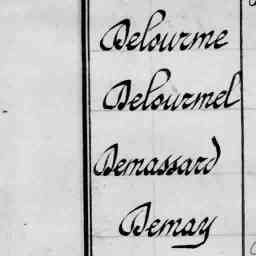 Delourme
Delourmel
Demassard
Demay